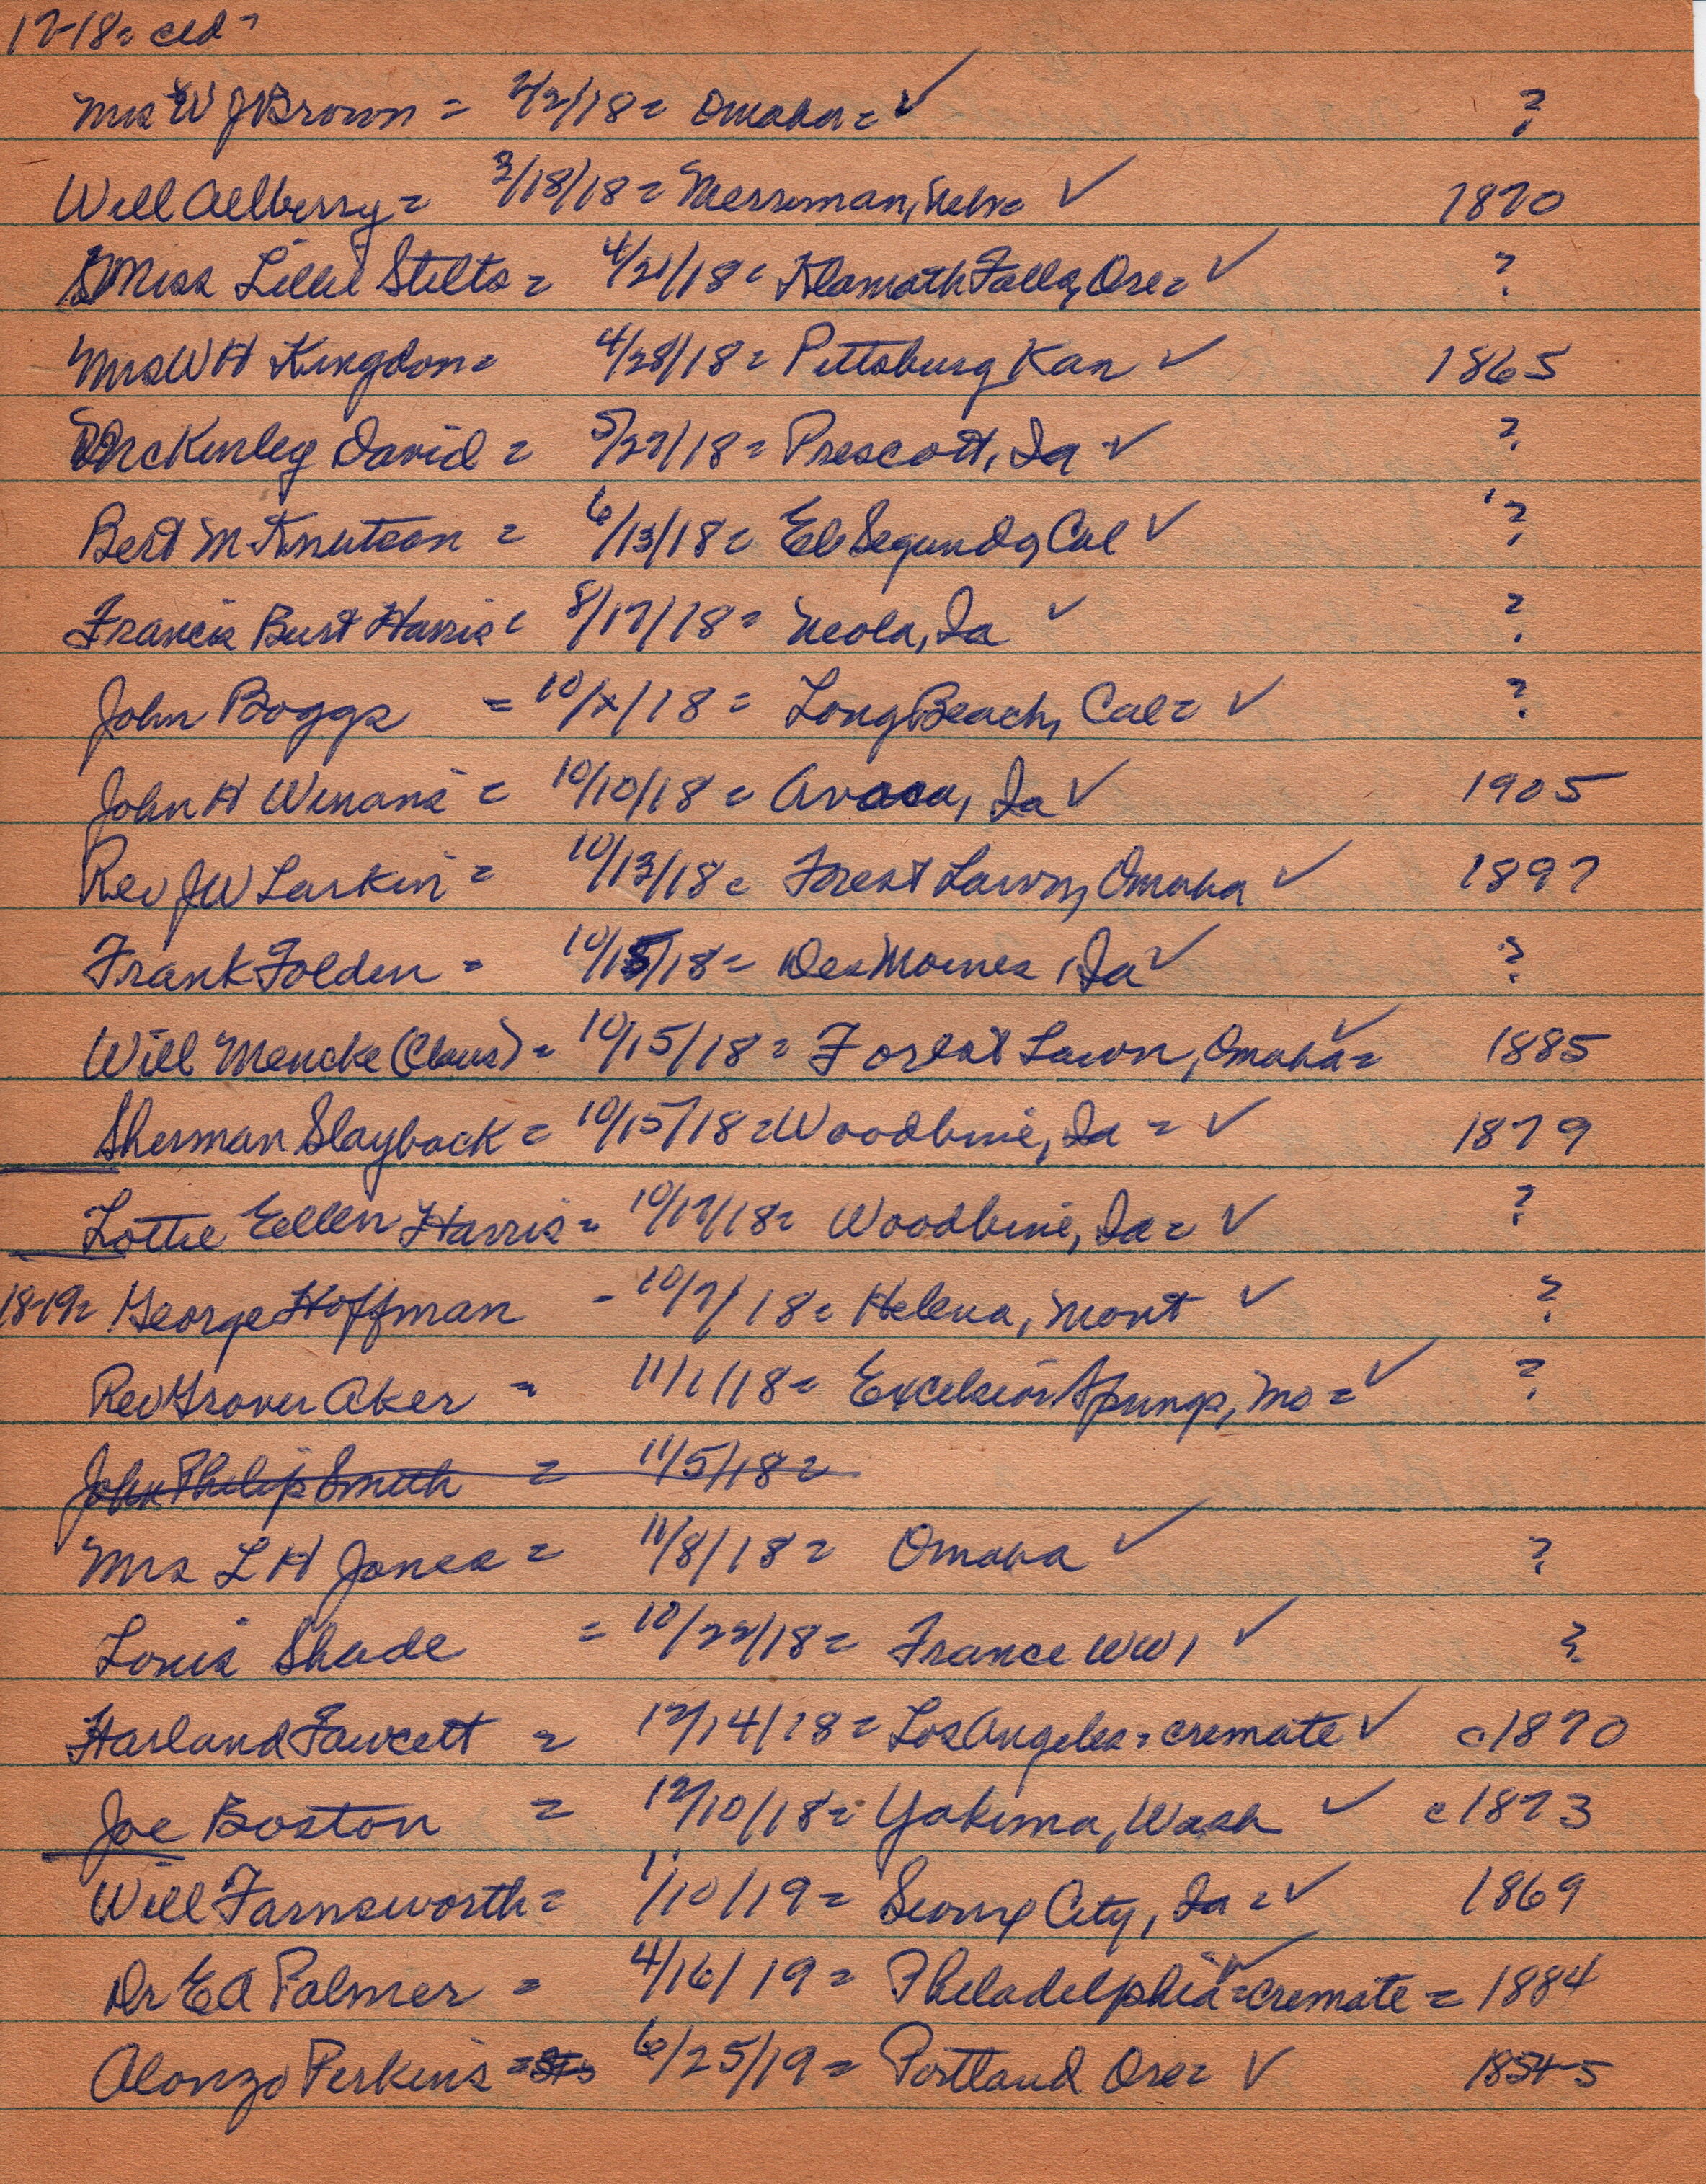 17-18= ctd =
Mrs W J Brown = 2/2/18 = Omaha = ✓ ?
Will Allberry = 3/18/18 = Merriman, Nebr ✓ 1870
Miss Lillie Stilts = 4/21/18 = Klamath Falls, Ore = ✓ ?
Mrs W H Kingdon = 4/28/18 = Pittsburg Kan ✓ 1865
McKinley David = 5/27/18 = Prescott, Ia ✓ ?
Bert M Knutson = 6/13/18 = El Segundo, Cal ✓ ?
Francis Burt Harris = 8/17/18 = Neola, Ia ✓ ?
John Boggs = 10/x/18 = Long Beach, Cal = ✓ ?
John H Winans = 10/10/18 = Avoca, Ia ✓ 1905
Rev J W Larkin = 10/13/18 = Forest Lawn, Omaha ✓ 1897
Frank Folden = 10/15/18 = Des Moines, Ia ✓ ?
Will Mencke (Claus) = 10/15/18 = Forest Lawn, Omaha = ✓ 1885
Sherman Slayback = 10/15/18 = Woodbine, Ia = ✓ 1879
Lottie Eellen Harris = 10/17/18 = Woodbine, Ia = ✓ ?
18-19= George Hoffman = 10/7/18 = Helena, Mont ✓ ?
Rev Grover Aker = 11/1/18 = Excelsior Springs, Mo = ✓ ?
John Philip Smith = 11/5/18 =
Mrs L H Jones = 11/8/18 = Omaha ✓ ?
Louis Shade = 10/22/18 = France WW1 ✓ ?
Harland Fawcett = 12/14/18 = Los Angeles = cremate ✓ c1870
Joe Boston = 12/10/18 = Yakima, Wash ✓ c1873
Will Farnsworth = 1/10/19 = Sioux City, Ia = ✓ 1869
Dr E A Palmer = 4/16/19 = Philadelphia = cremate = ✓ 1884
Alonzo Perkins = 6/25/19 = Portland Ore = ✓ 1854-5